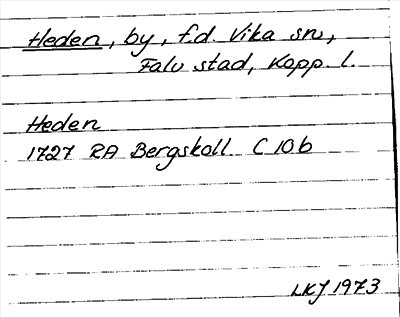 Heden, by, f.d. Vika sn,
Falu stad, Kopp. l.
Heden
1727 RA Bergskoll C 10b
LKJ 1973